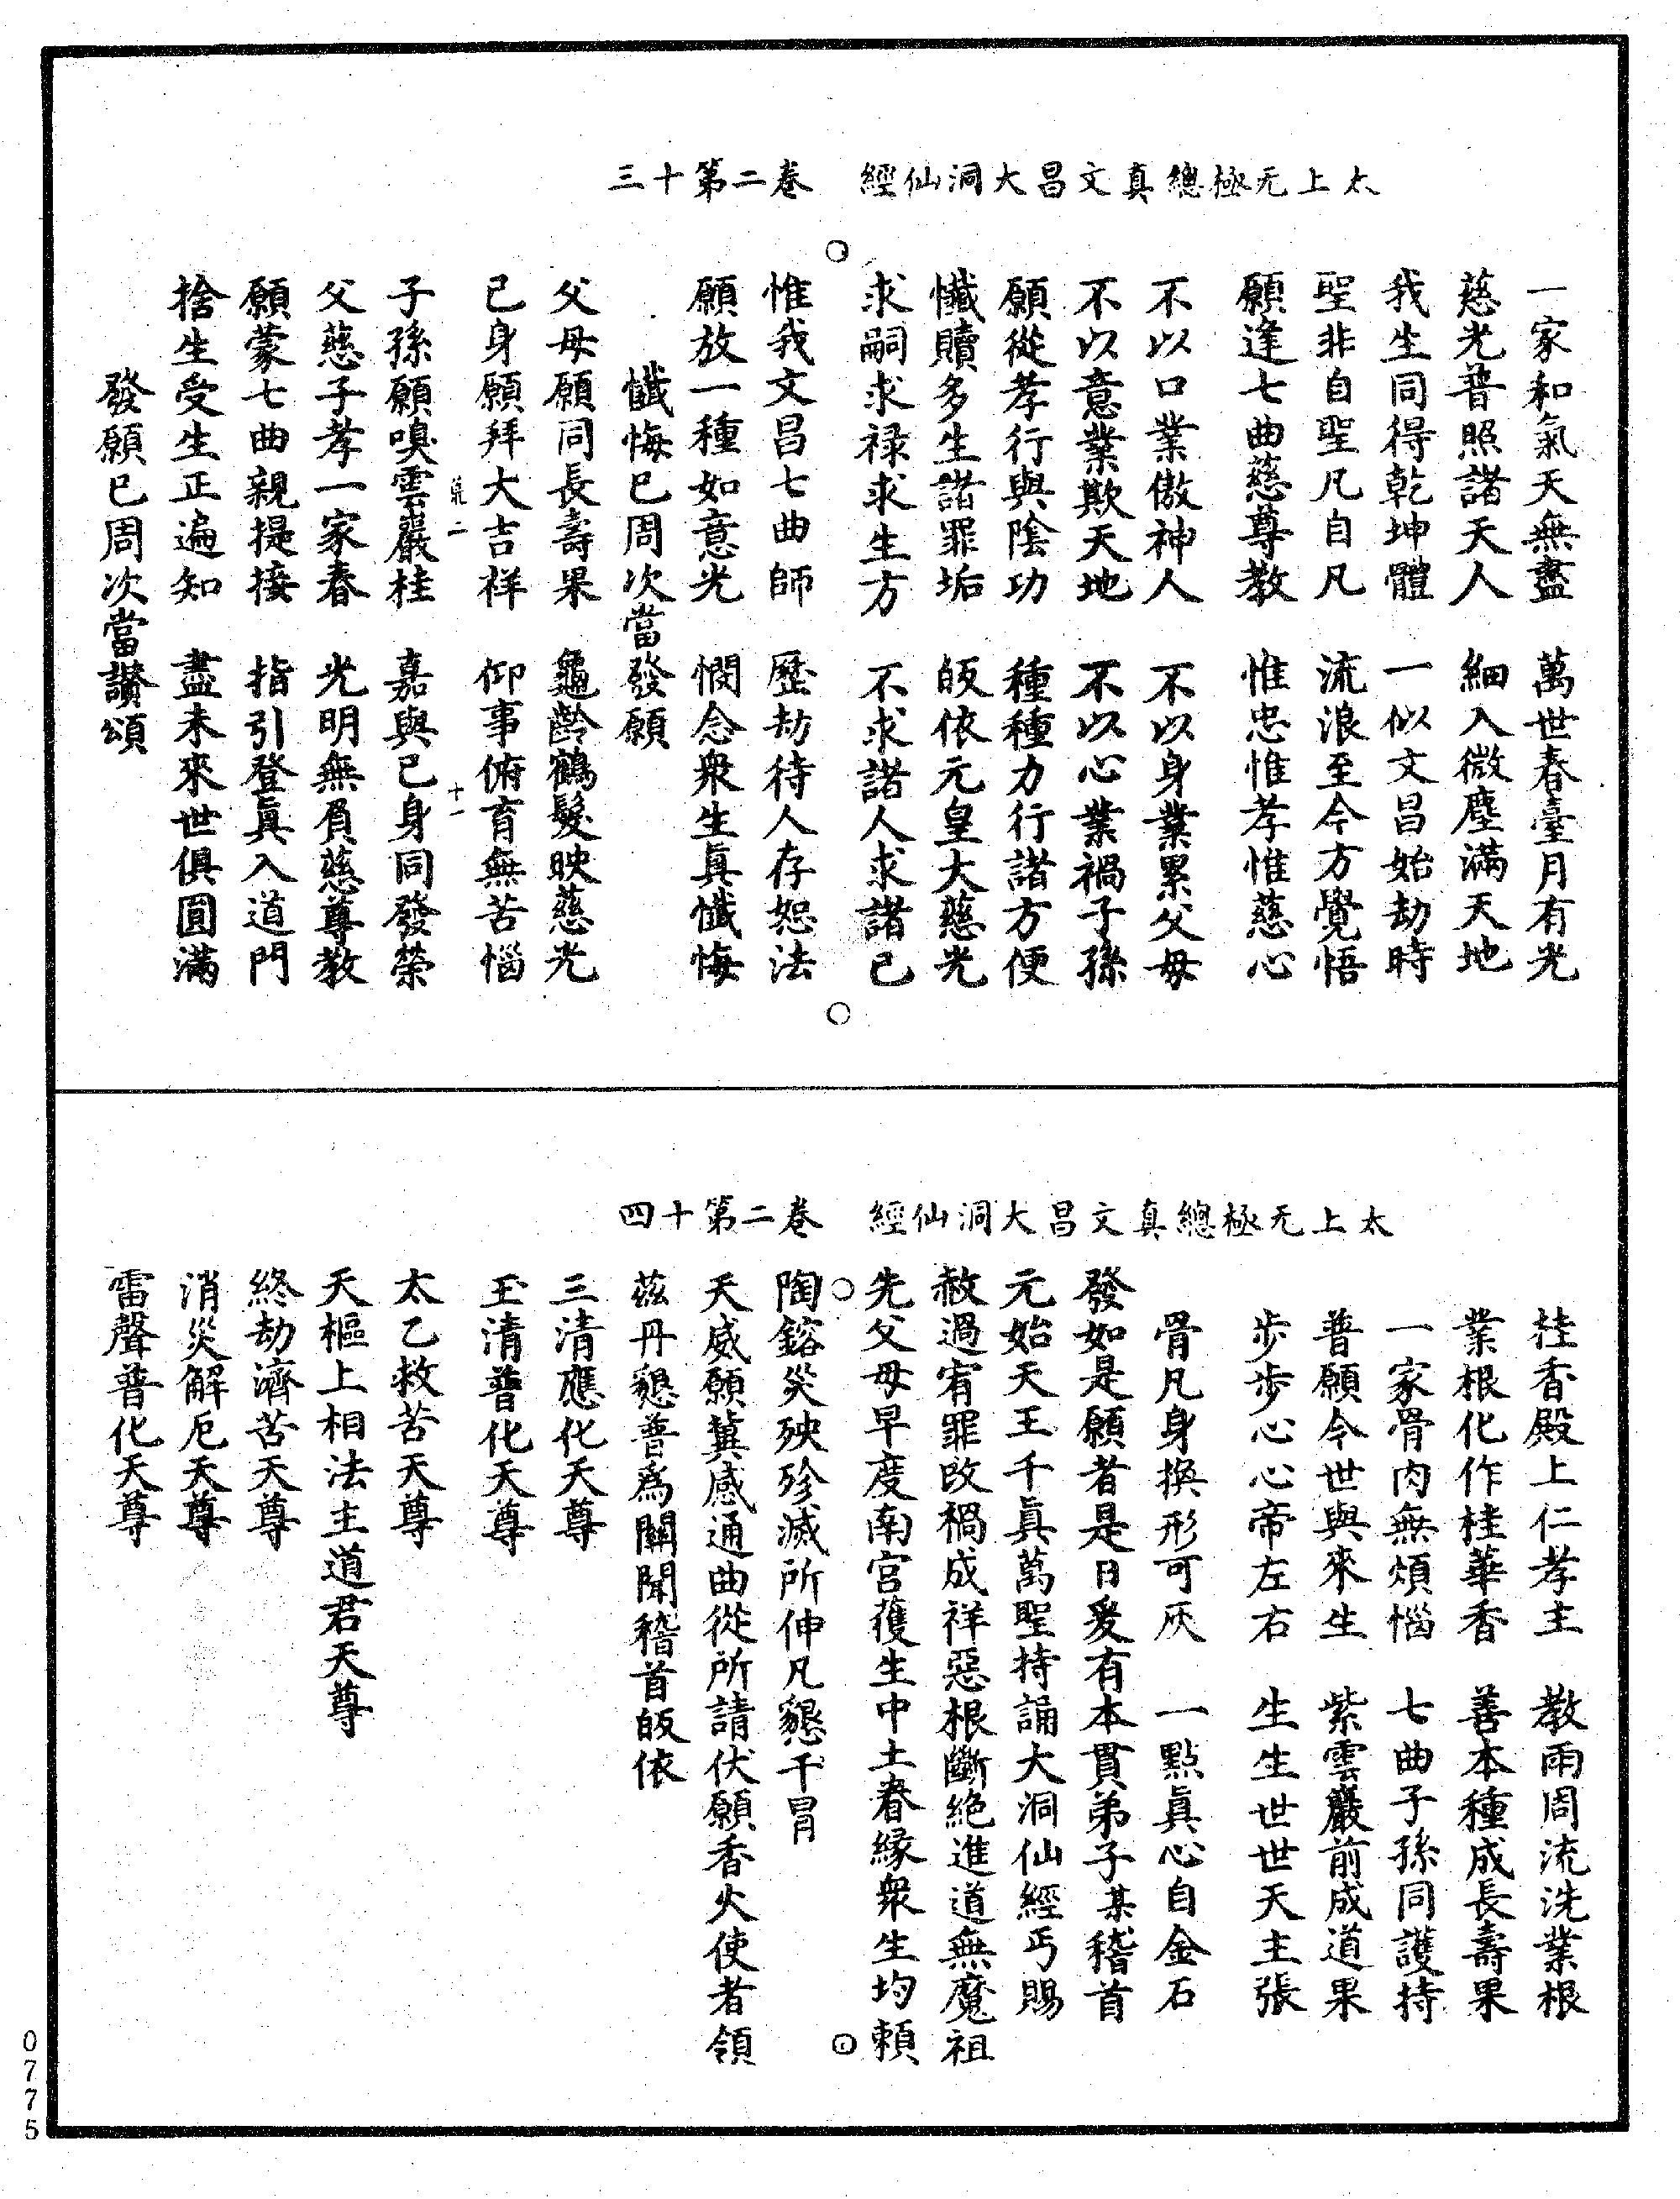 太上无極總真文昌大洞仙經　卷二第十三
一家和氣天無盡　萬世春臺月有光
慈光普照諸天人　細入微塵滿天地
我生同得乾坤體　一似文昌始劫時
聖非自聖凡自凡　流浪至今方覺悟
願逢七曲慈尊教　惟忠惟孝惟慈心
不以口業傲神人　不以身業累父母
不以意業欺天地　不以心業禍子孫
願從孝行與陰功　種種力行諸方便
懺贖多生諸罪垢　皈依元皇大慈光
求嗣求祿求生方　不求諸人求諸己
惟我文昌七曲師　歷劫待人存恕法
願放一種如意光　憫念衆生眞懺悔
懺悔已周次當發願
父母願同長壽果　龜齡鶴髮映慈光
己身願拜大吉祥　仰事俯育無苦惱
二　十一
子孫願嗅雲巖桂　嘉與己身同發榮
父慈子孝一家春　光明無負慈尊教
願蒙七曲親提接　指引登眞入道門
捨生受生正遍知　盡未來世俱圓滿
發願已周次當讚頌
太上无極總真文昌大洞仙經　卷二第十四
桂香殿上仁孝主　教雨周流洗業根
業根化作桂華香　善本種成長壽果
一家骨肉無煩惱　七曲子孫同護持
普願今世與來生　紫雲巖前成道果
步步心心帝左右　生生世世天主張
骨凡身換形可灰　一點眞心自金石
發如是願者是日爰有本貫弟子某稽首
元始天王千眞萬聖持誦大洞仙經丐賜
赦過宥罪改禍成祥惡根斷絶進道無魔祖
先父母早度南宮獲生中土眷緣衆生均賴
陶鎔災殃殄滅所伸凡懇干冒
天威願冀感通曲從所請伏願香火使者領
茲丹懇普爲關聞稽首皈依
三清應化天尊
玉清普化天尊
太乙救苦天尊
天樞上相法主道君天尊
終劫濟苦天尊
消災解厄天尊
雷聲普化天尊
0775